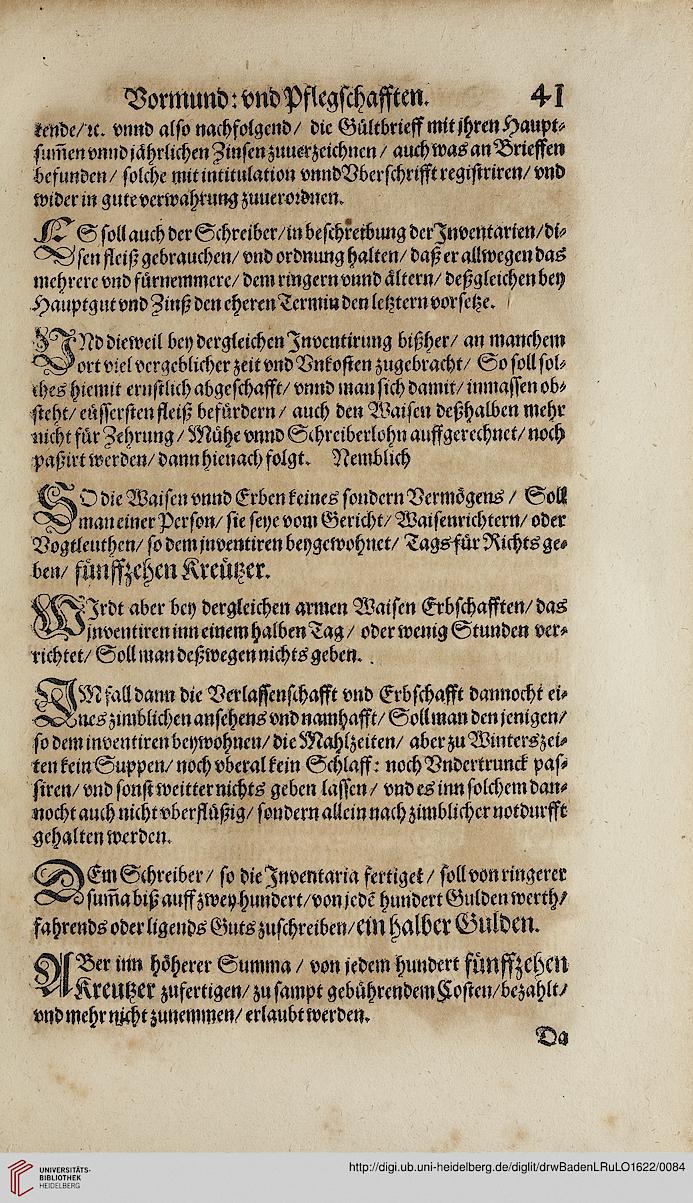 Vormund: vnd Pflegschafften. 41
kende/ ꝛc. vnnd also nachfolgend/ die Gültbrieff mit jhren Haupt-
sum̃en vnnd jährlichen Zinsen zuuerzeichnen/ auch was an Brieffen
befunden/ solche mit intitulation vnnd Vberschrifft registriren/ vnd
wider in gute verwahrung zuuerordnen.
ES soll auch der Schreiber/ in beschreibung der Inventarien/ di-
sen fleiß gebrauchen/ vnd ordnung halten/ daß er allwegen das
mehrere vnd fürnemmere/ dem ringern vnnd ältern/ deßgleichen bey
Hauptgut vnd Zinß den eheren Termin den letztern vorsetze.
VNd dieweil bey dergleichen Inventirung bißher/ an manchem
ort viel vergeblicher zeit vnd Vnkosten zugebracht/ So soll sol-
ches hiemit ernstlich abgeschafft/ vnnd man sich damit/ inmassen ob-
steht/ eüssersten fleiß befürdern/ auch den Waisen deßhalben mehr
nicht für Zehrung/ Mühe vnnd Schreiberlohn auffgerechnet/ noch
paßirt werden/ dann hienach folgt. Nemblich
SO die Waisen vnnd Erben keines sondern Vermögens/ Soll
man einer Person/ sie seye vom Gericht/ Waisenrichtern/ oder
Vogtleuthen/ so dem inventiren beygewohnet/ Tags für Richts ge-
ben/ fünffzehen Kreützer.
WIrdt aber bey dergleichen armen Waisen Erbschafften/ das
inventiren inn einem halben Tag/ oder wenig Stunden ver-
richtet/ Soll man deßwegen nichts geben.
IM fall dann die Verlassenschafft vnd Erbschafft dannocht ei-
nes zimblichen ansehens vnd namhafft/ Soll man den jenigen/
so dem inventiren beywohnen/ die Mahlzeiten/ aber zu Winterszei-
ten kein Suppen/ noch vberal kein Schlaff: noch Vndertrunck pas-
siren/ vnd sonst weitter nichts geben lassen/ vnd es inn solchem dan-
nocht auch nicht vberflüßig/ sondern allein nach zimblicher notdurfft
gehalten werden.
DEm Schreiber/ so die Inventaria fertiget/ soll von ringerer
sum̃a biß auff zwey hundert/ von jedẽ hundert Gulden werth/
fahrends oder ligends Guts zuschreiben/ ein halber Gulden.
ABer inn höherer Summa/ von jedem hundert fünffzehen
Kreutzer zufertigen/ zu sampt gebührendem Costen/ bezahlt/
vnd mehr nicht zunemmen/ erlaubt werden.
Da
UNIVERSITÄTS-
BIBLIOTHEK
HEIDELBERG
http://digi.ub.uni-heidelberg.de/diglit/drwBadenLRuLO1622/0084